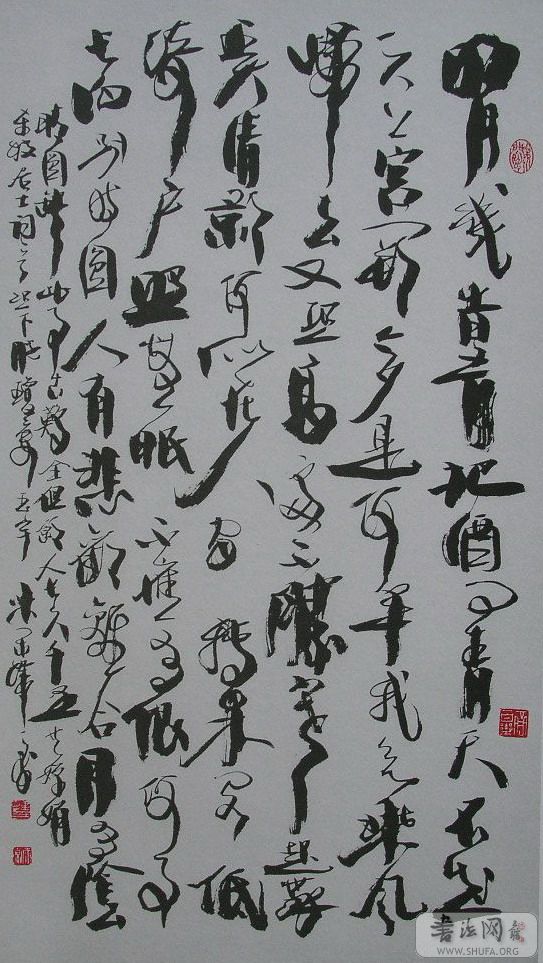 明月幾时有把酒问青天不知
天上宫阙今夕是何年我欲乘风
归去又恐高处不胜寒起舞
弄清影何似在人间转朱阁低
绮户照无眠不应有恨何事
长向别时圆人有悲欢离合月有阴
晴圆缺此事古难全但愿人长久千里共婵娟
东坡居士词一首恐下脱琼楼玉宇
书法网
WWW.SHUFA.ORG